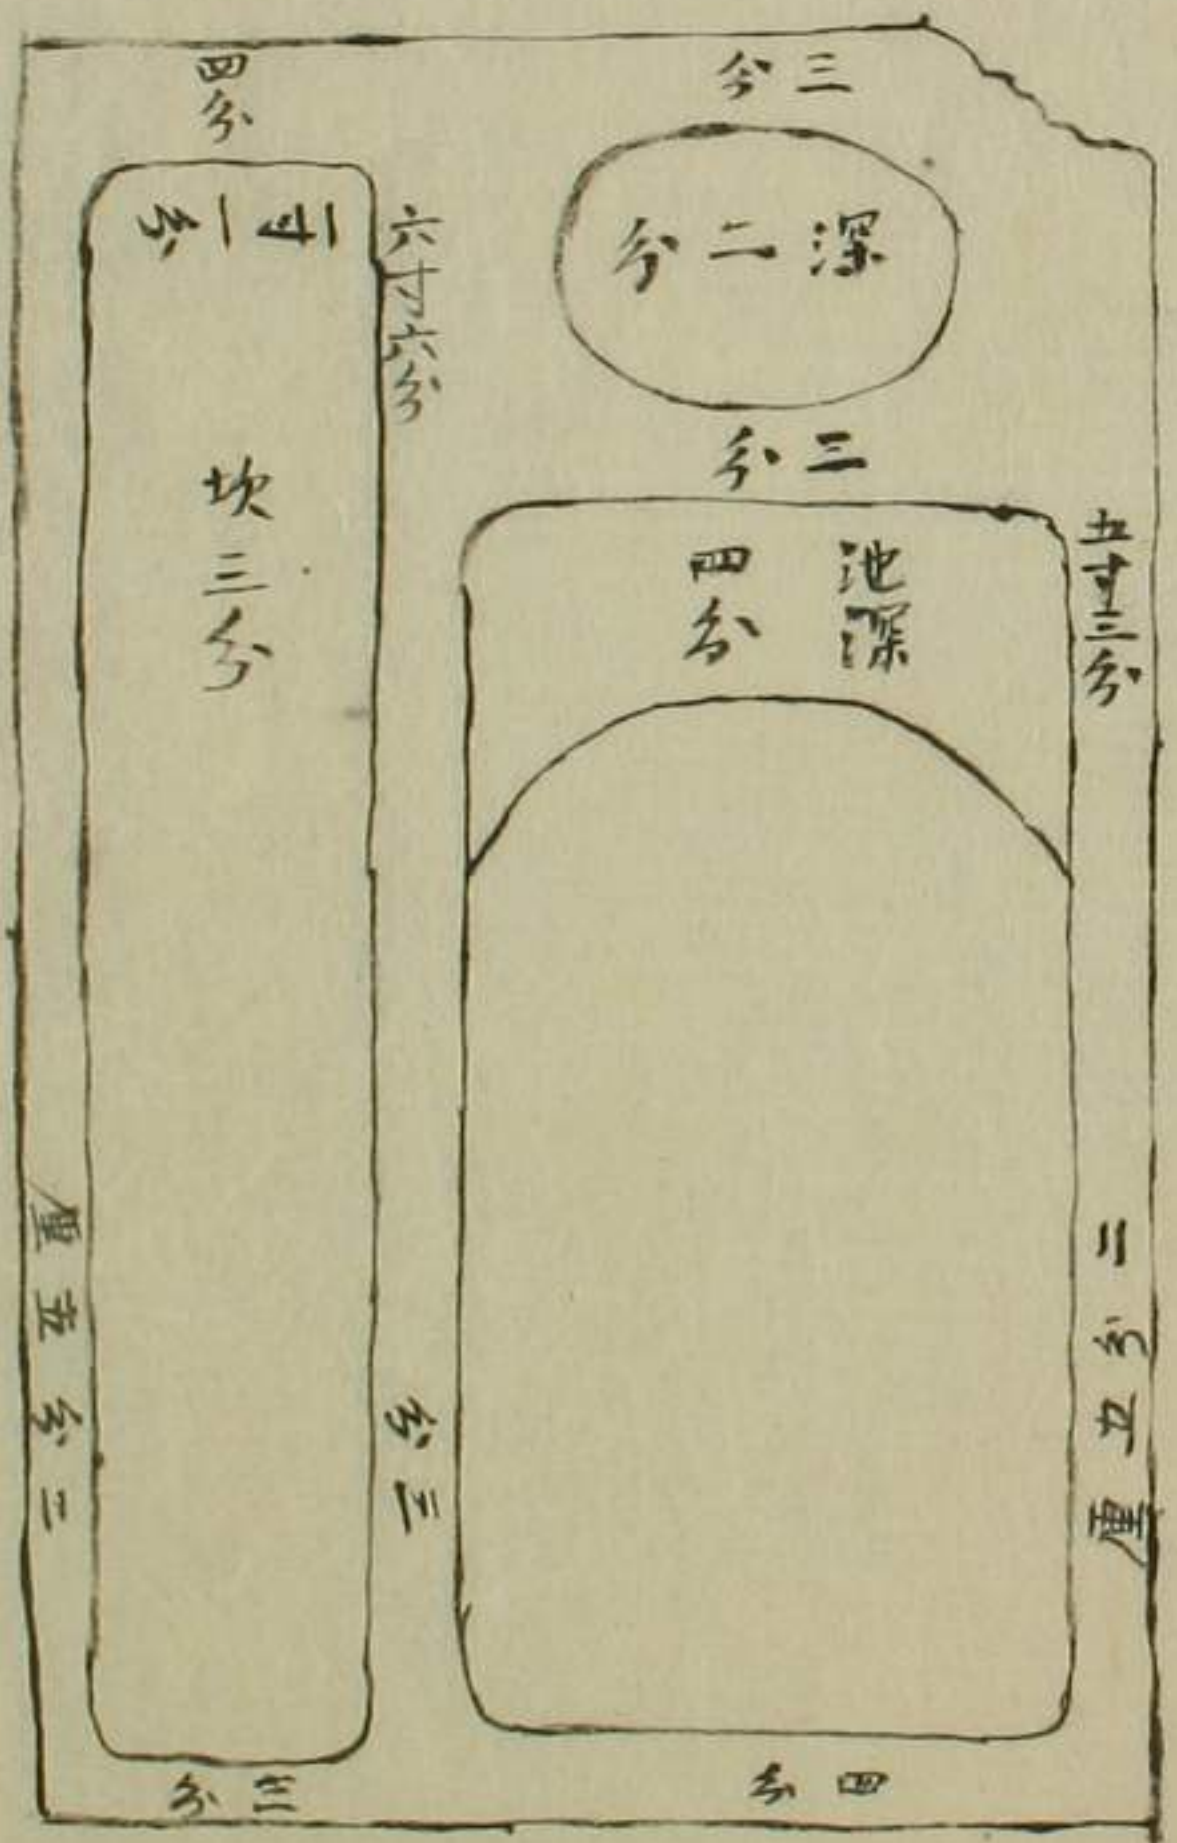 三分
深二分
三分
五寸三分
池深
四分
二分五厘
四分
四分
一寸一分
六寸六分
坎三分
三分
二分五厘
三分